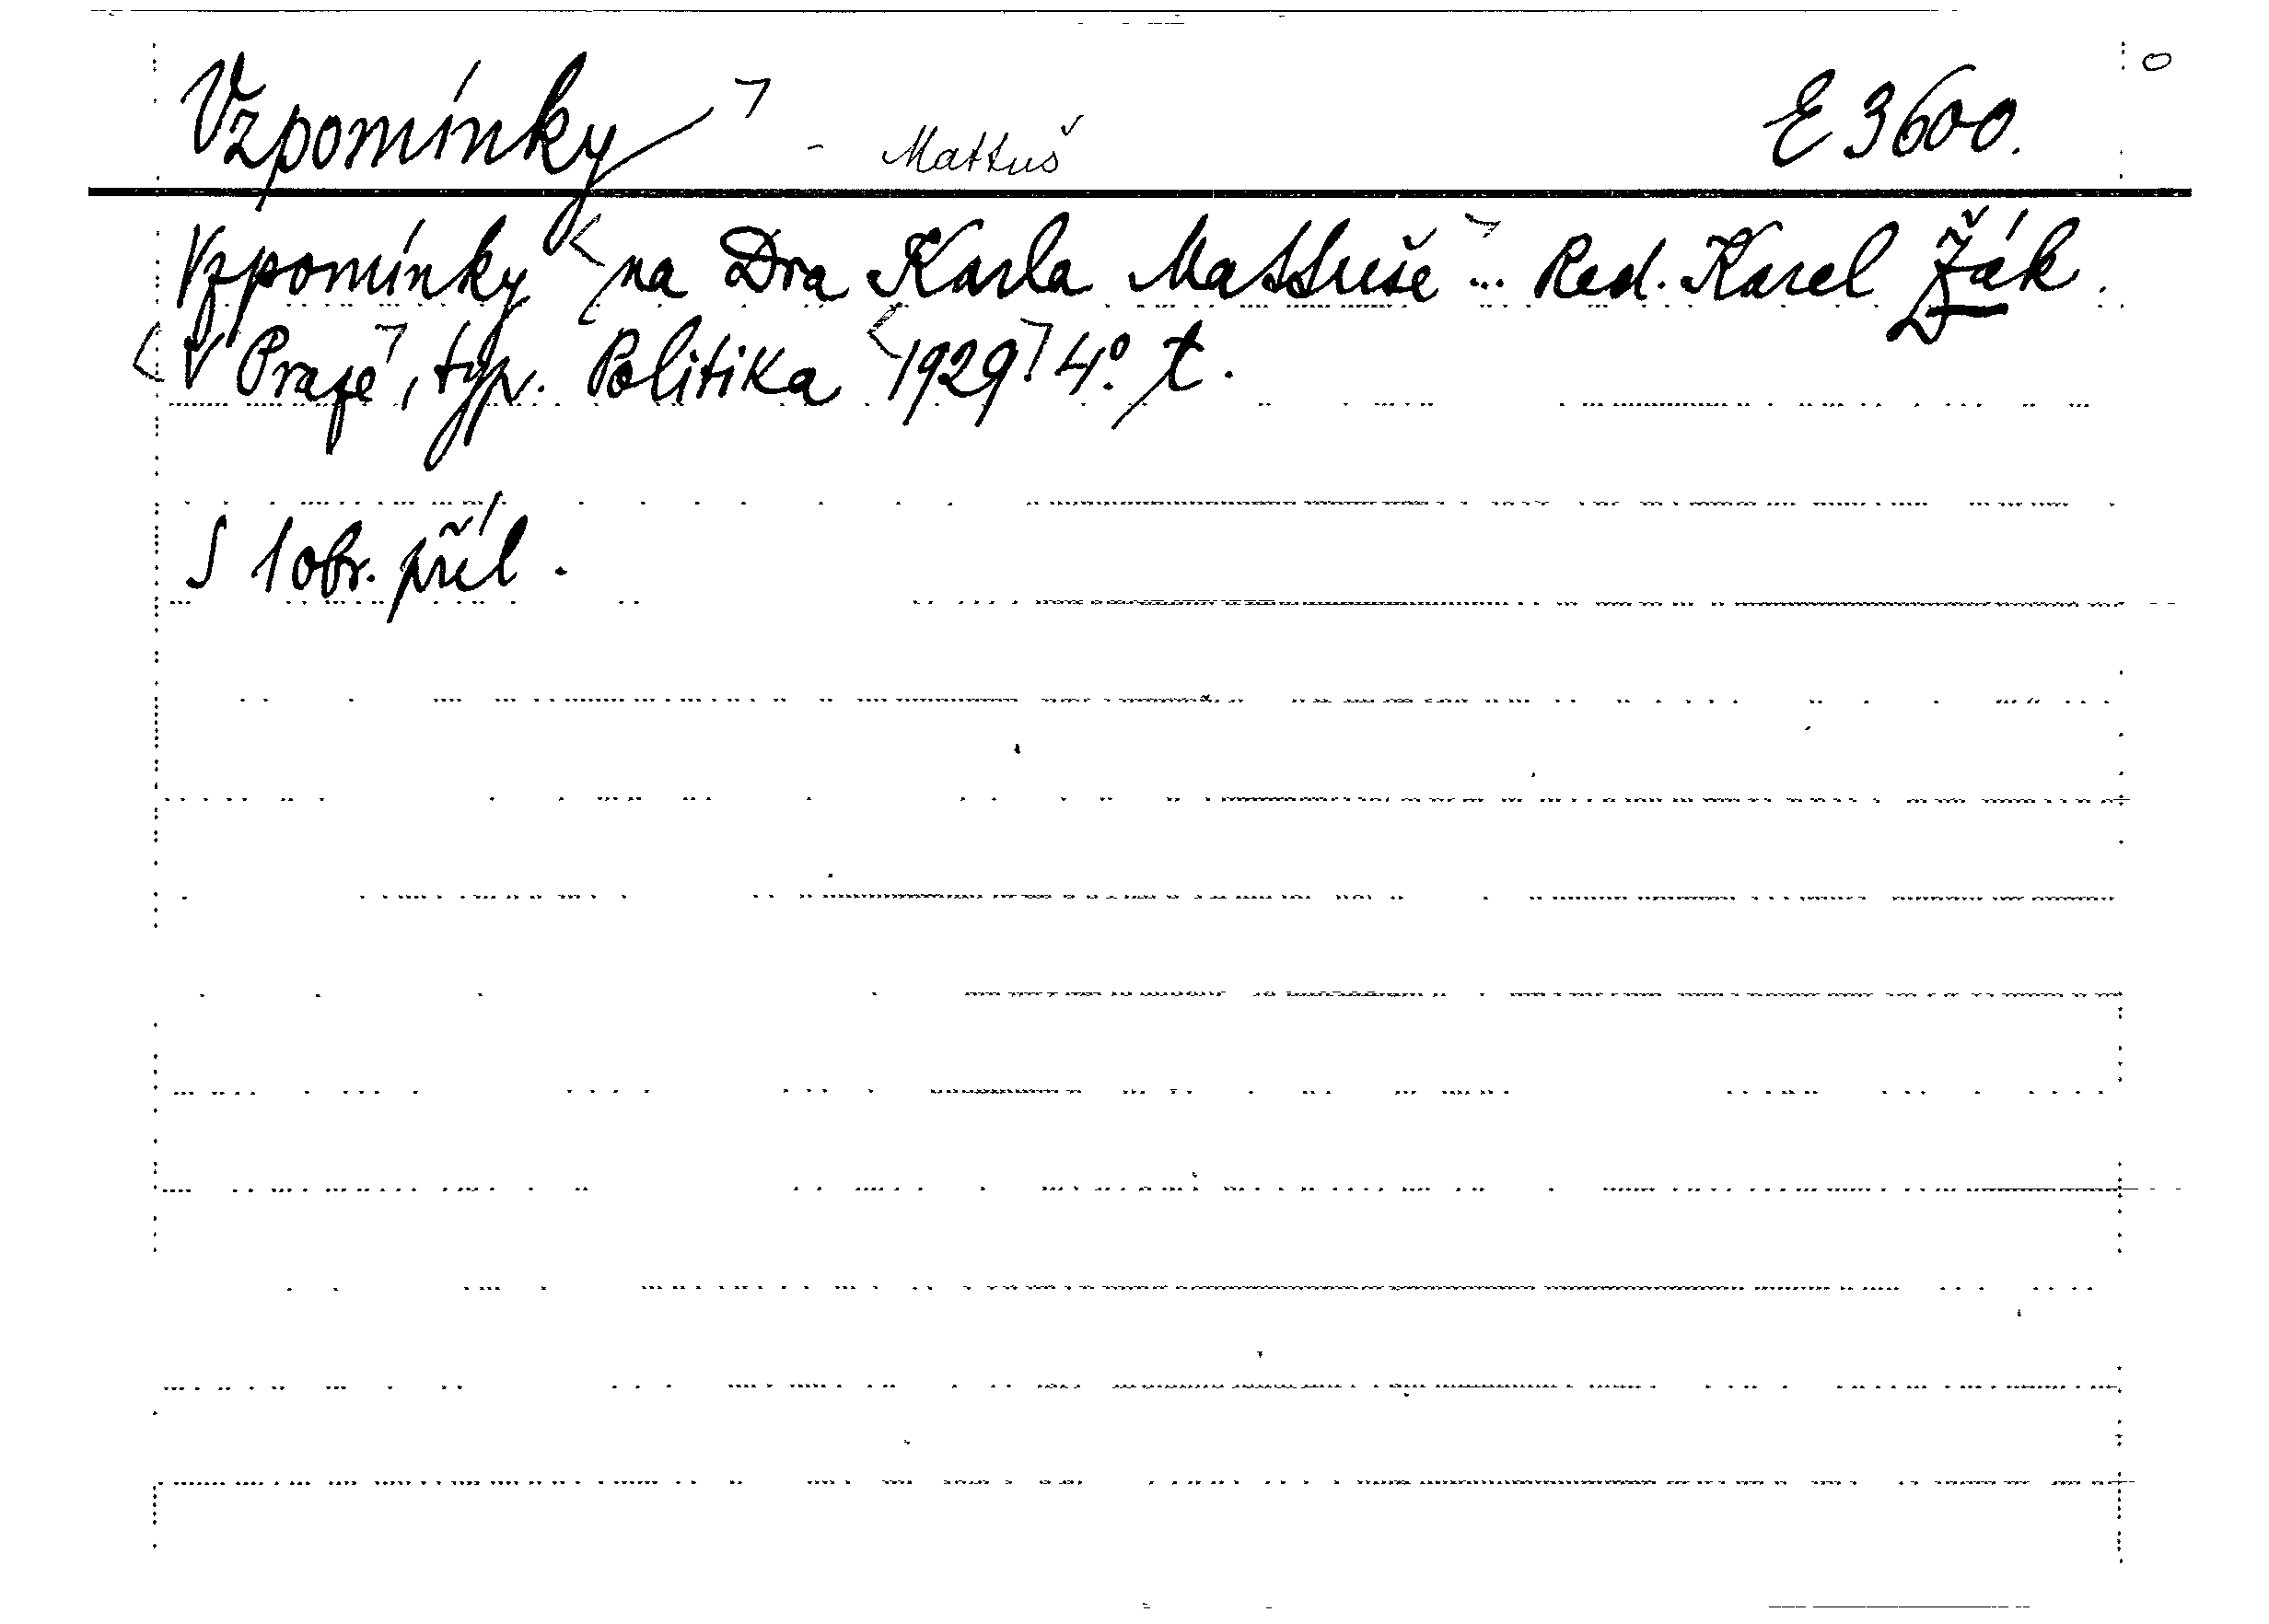 Vzpomínky ¬ - Mattuš E 3600. 0
Vzpomínky <na Dra Karla Mattuše¬... Red. Karel Žák.
<V Praze¬, typ. Politika <1929¬ 4.° t.
S 1 obr. příl.